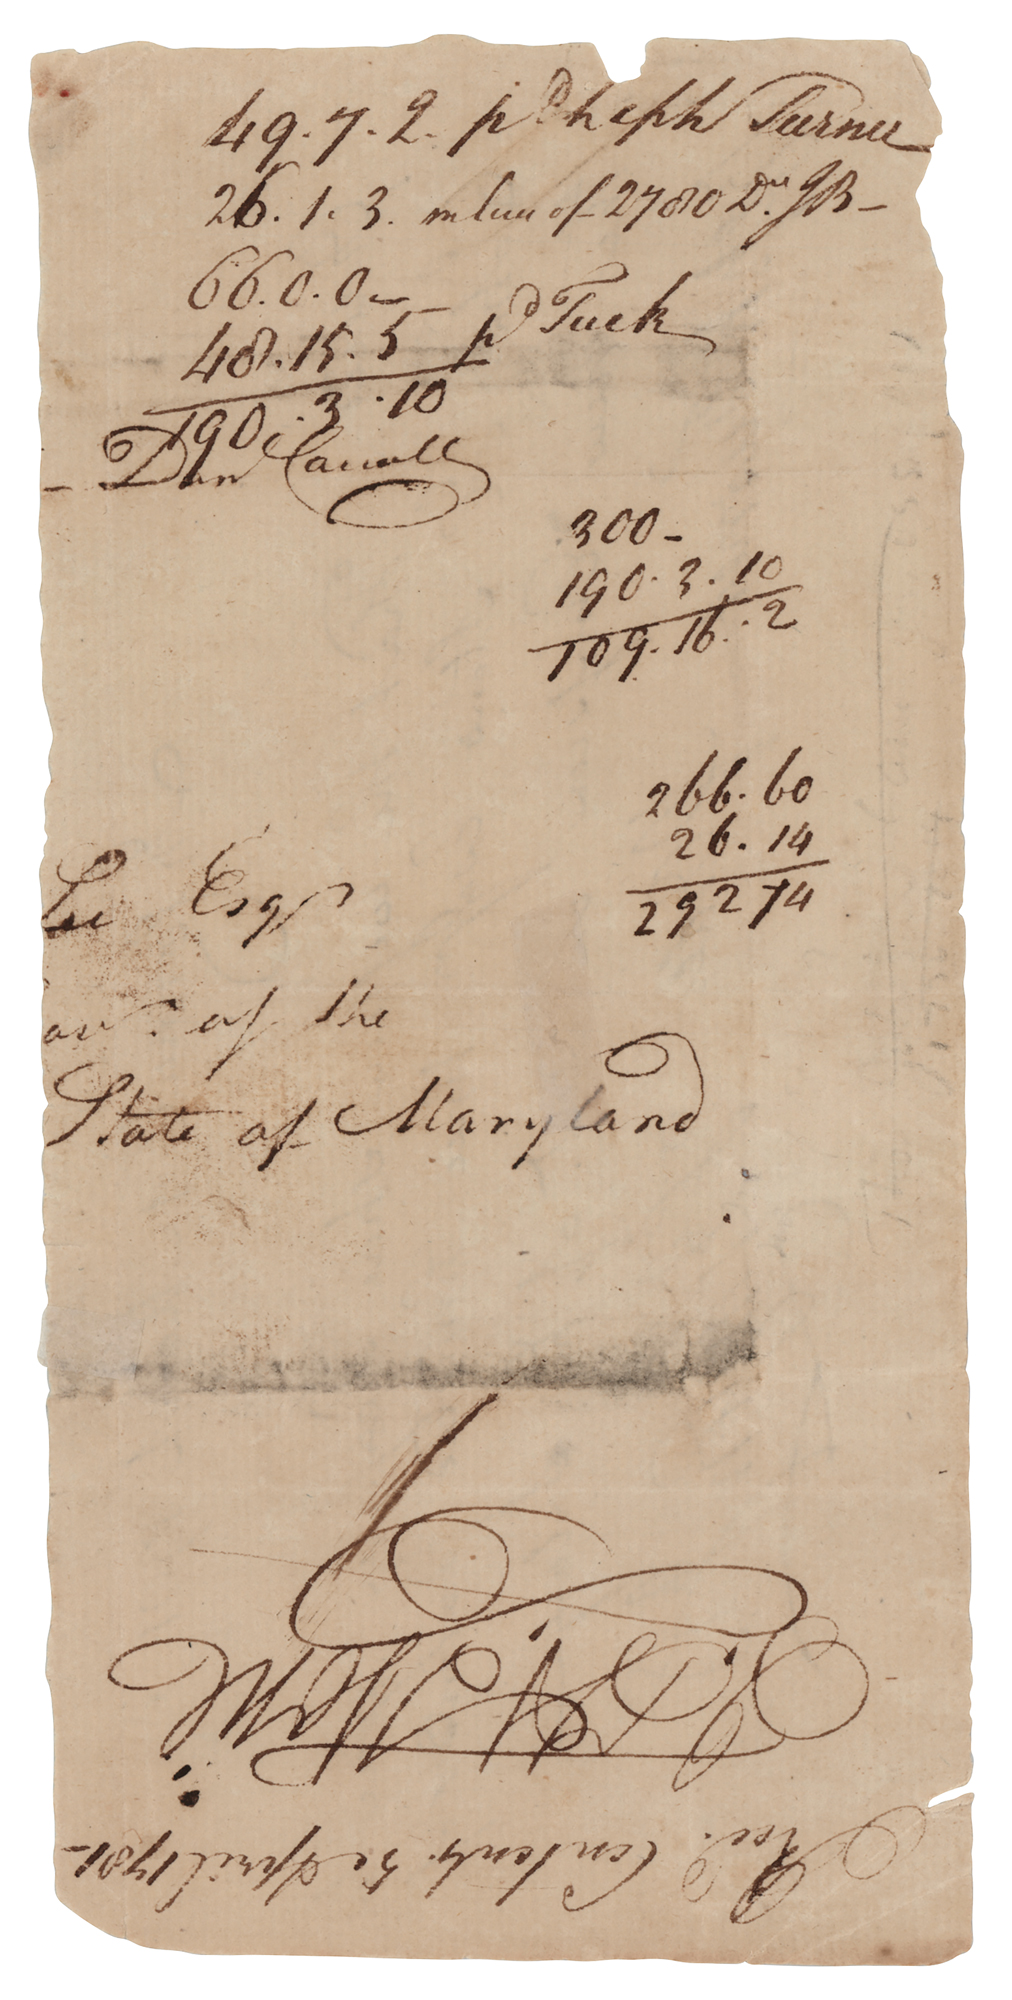 49. 7. 2. pd Sheph Turner
26. 1. 3. in lieu of 2780 Drs JB -
66. 0. 0 -
48. 15. 5 pd Tuck
190. 3. 10
- Dan Carroll
300 -
190. 3. 10
109. 16. 2
266. 60
26. 14
292 74
Lee Esqr
ovr. of the
State of Maryland
Recd. Contents 5e April 1781 -